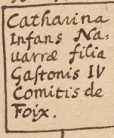 Catharina
Infans Na-
uarræ filia
Gastonis IV
Comitis de
Foix.